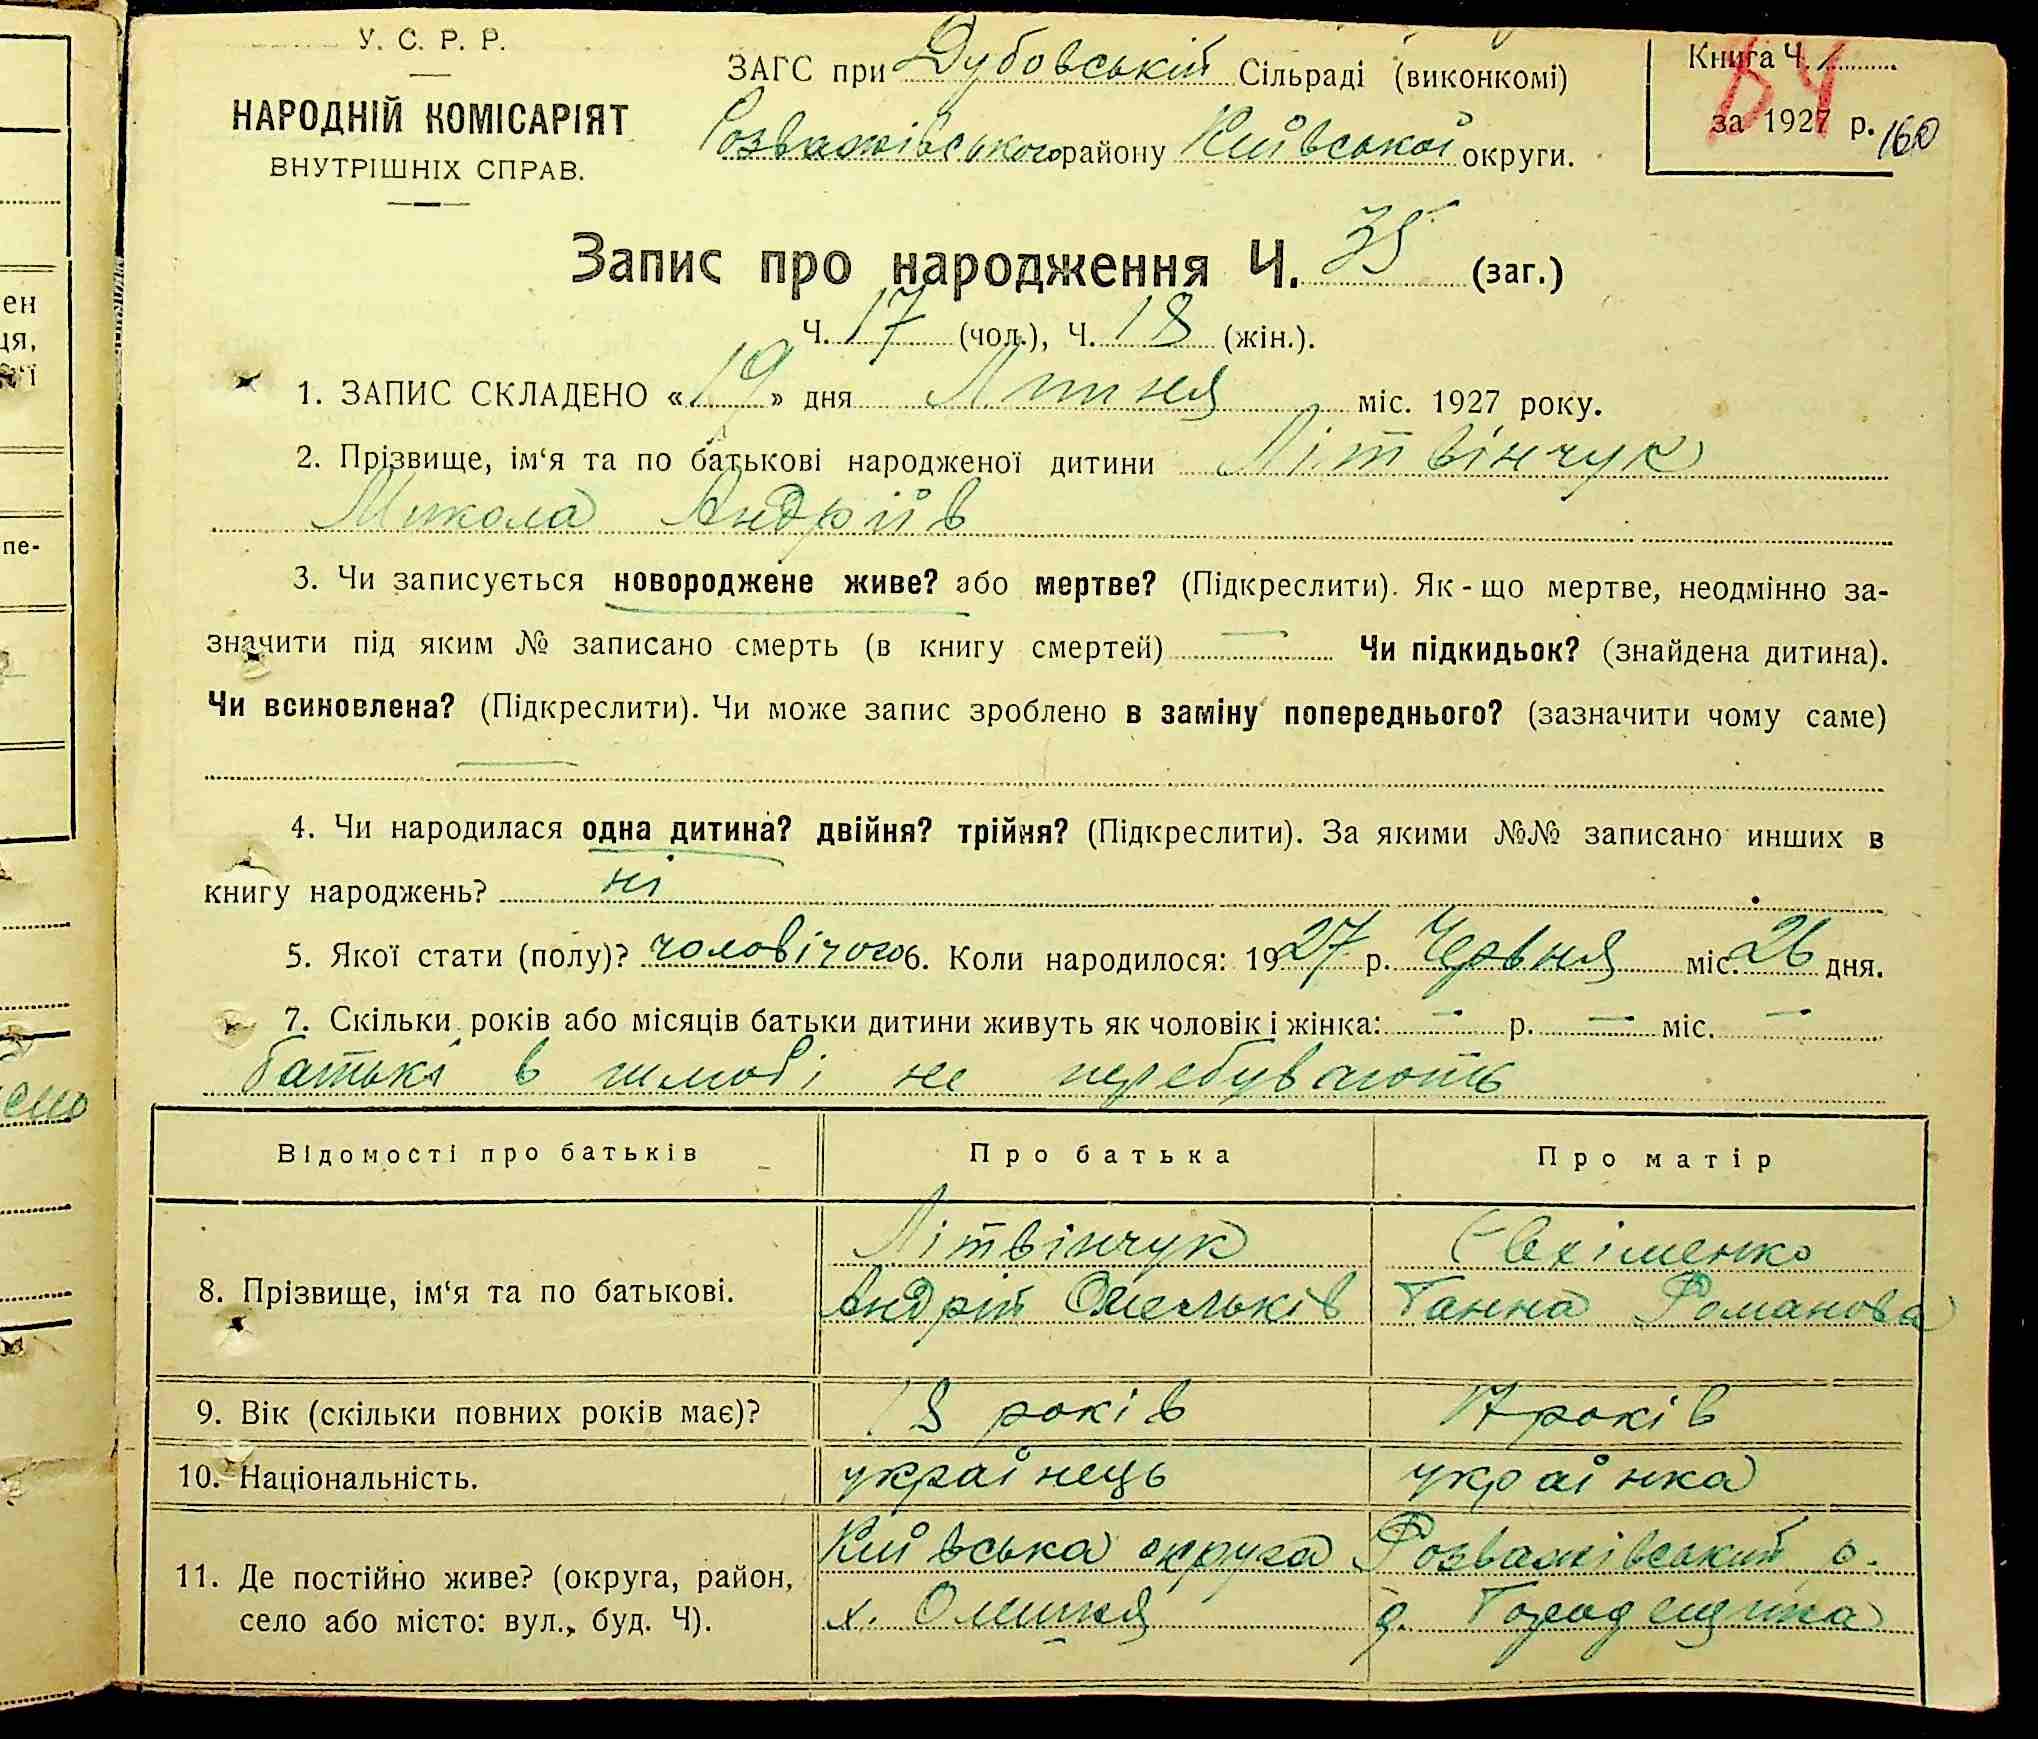 У. С. Р. Р.
НАРОДНІЙ КОМІСАРІЯТ
ВНУТРІШНІХ СПРАВ.
ЗАГС при Дубовській Сільраді (виконкомі)
Розважівського району Київської округи.
Книга Ч. 1
за 1927 р.
160
Запис про народження Ч. 35 (заг.)
Ч. 17 (чол.), Ч. 18 (жін.).
1. ЗАПИС СКЛАДЕНО «19» дня Липня міс. 1927 року.
2. Прізвище, ім‘я та по батькові народженої дитини Літвінчук
Микола Андріїв
3. Чи записується новороджене живе? або мертве? (Підкреслити). Як-що мертве, неодмінно за-
значити під яким № записано смерть (в книгу смертей) — Чи підкидьок? (знайдена дитина).
Чи всиновлена? (Підкреслити). Чи може запис зроблено в заміну попереднього? (зазначити чому саме)
—
4. Чи народилася одна дитина? двійня? трійня? (Підкреслити). За якими №№ записано инших в
книгу народжень? ні
5. Якої стати (полу)? чоловічого 6. Коли народилося: 1927 р. Червня міс. 26 дня.
7. Скільки років або місяців батьки дитини живуть як чоловік і жінка: — р. — міс. —
батькі в шлюбі не перебувають
Відомості про батьків Про батька Про матір
8. Прізвище, ім‘я та по батькові.
Літвінчук
Андрій Омельків
Євхіменко
Ганна Романова
9. Вік (скільки повних років має)? 18 років 17 років
10. Національність. українець українка
11. Де постійно живе? (округа, район,
село або місто: вул., буд. Ч).
Київська округа Розважівський р.
х. Олиция д. Городещина